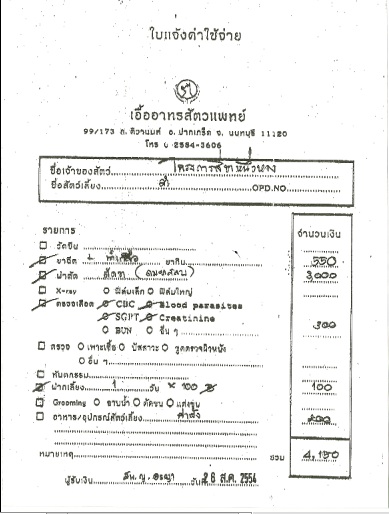 ใบแจ้งค่าใช้จ่าย
เอื้ออาทรสัตวแพทย์
99/173 ถ. ติวานนท์ อ. ปากเกร็ด จ. นนทบุรี 11120
โทร 0-2584-3606
ชื่อเจ้าของสัตว์
ชื่อสัตว์เลี้ยง OPD.NO.
รายการ จำนวนเงิน
วัคซีน
ยาฉีด ยากิน 550
ผ่าตัด 3,000
X-ray ฟิล์มเล็ก ฟิล์มใหญ่
ตรวจเลือด CBC Blood parasites
SGPT Creatinine 300
BUN อื่น ๆ
ตรวจ เพาะเชื้อ ปัสสาวะ ขูดตรวจผิวหนัง
อื่น ๆ
ทันตกรรม
ฝากเลี้ยง 1 วัน × 100 100
Grooming อาบน้ำ ตัดขน แต่งขน
อาหาร/อุปกรณ์สัตว์เลี้ยง
หมายเหตุ รวม 4,150
ผู้รับเงิน วันที่ 26 ส.ค. 2554